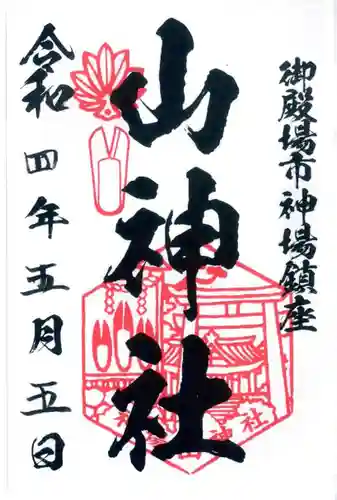 御殿場市神場鎮座
山神社
令和四年五月五日